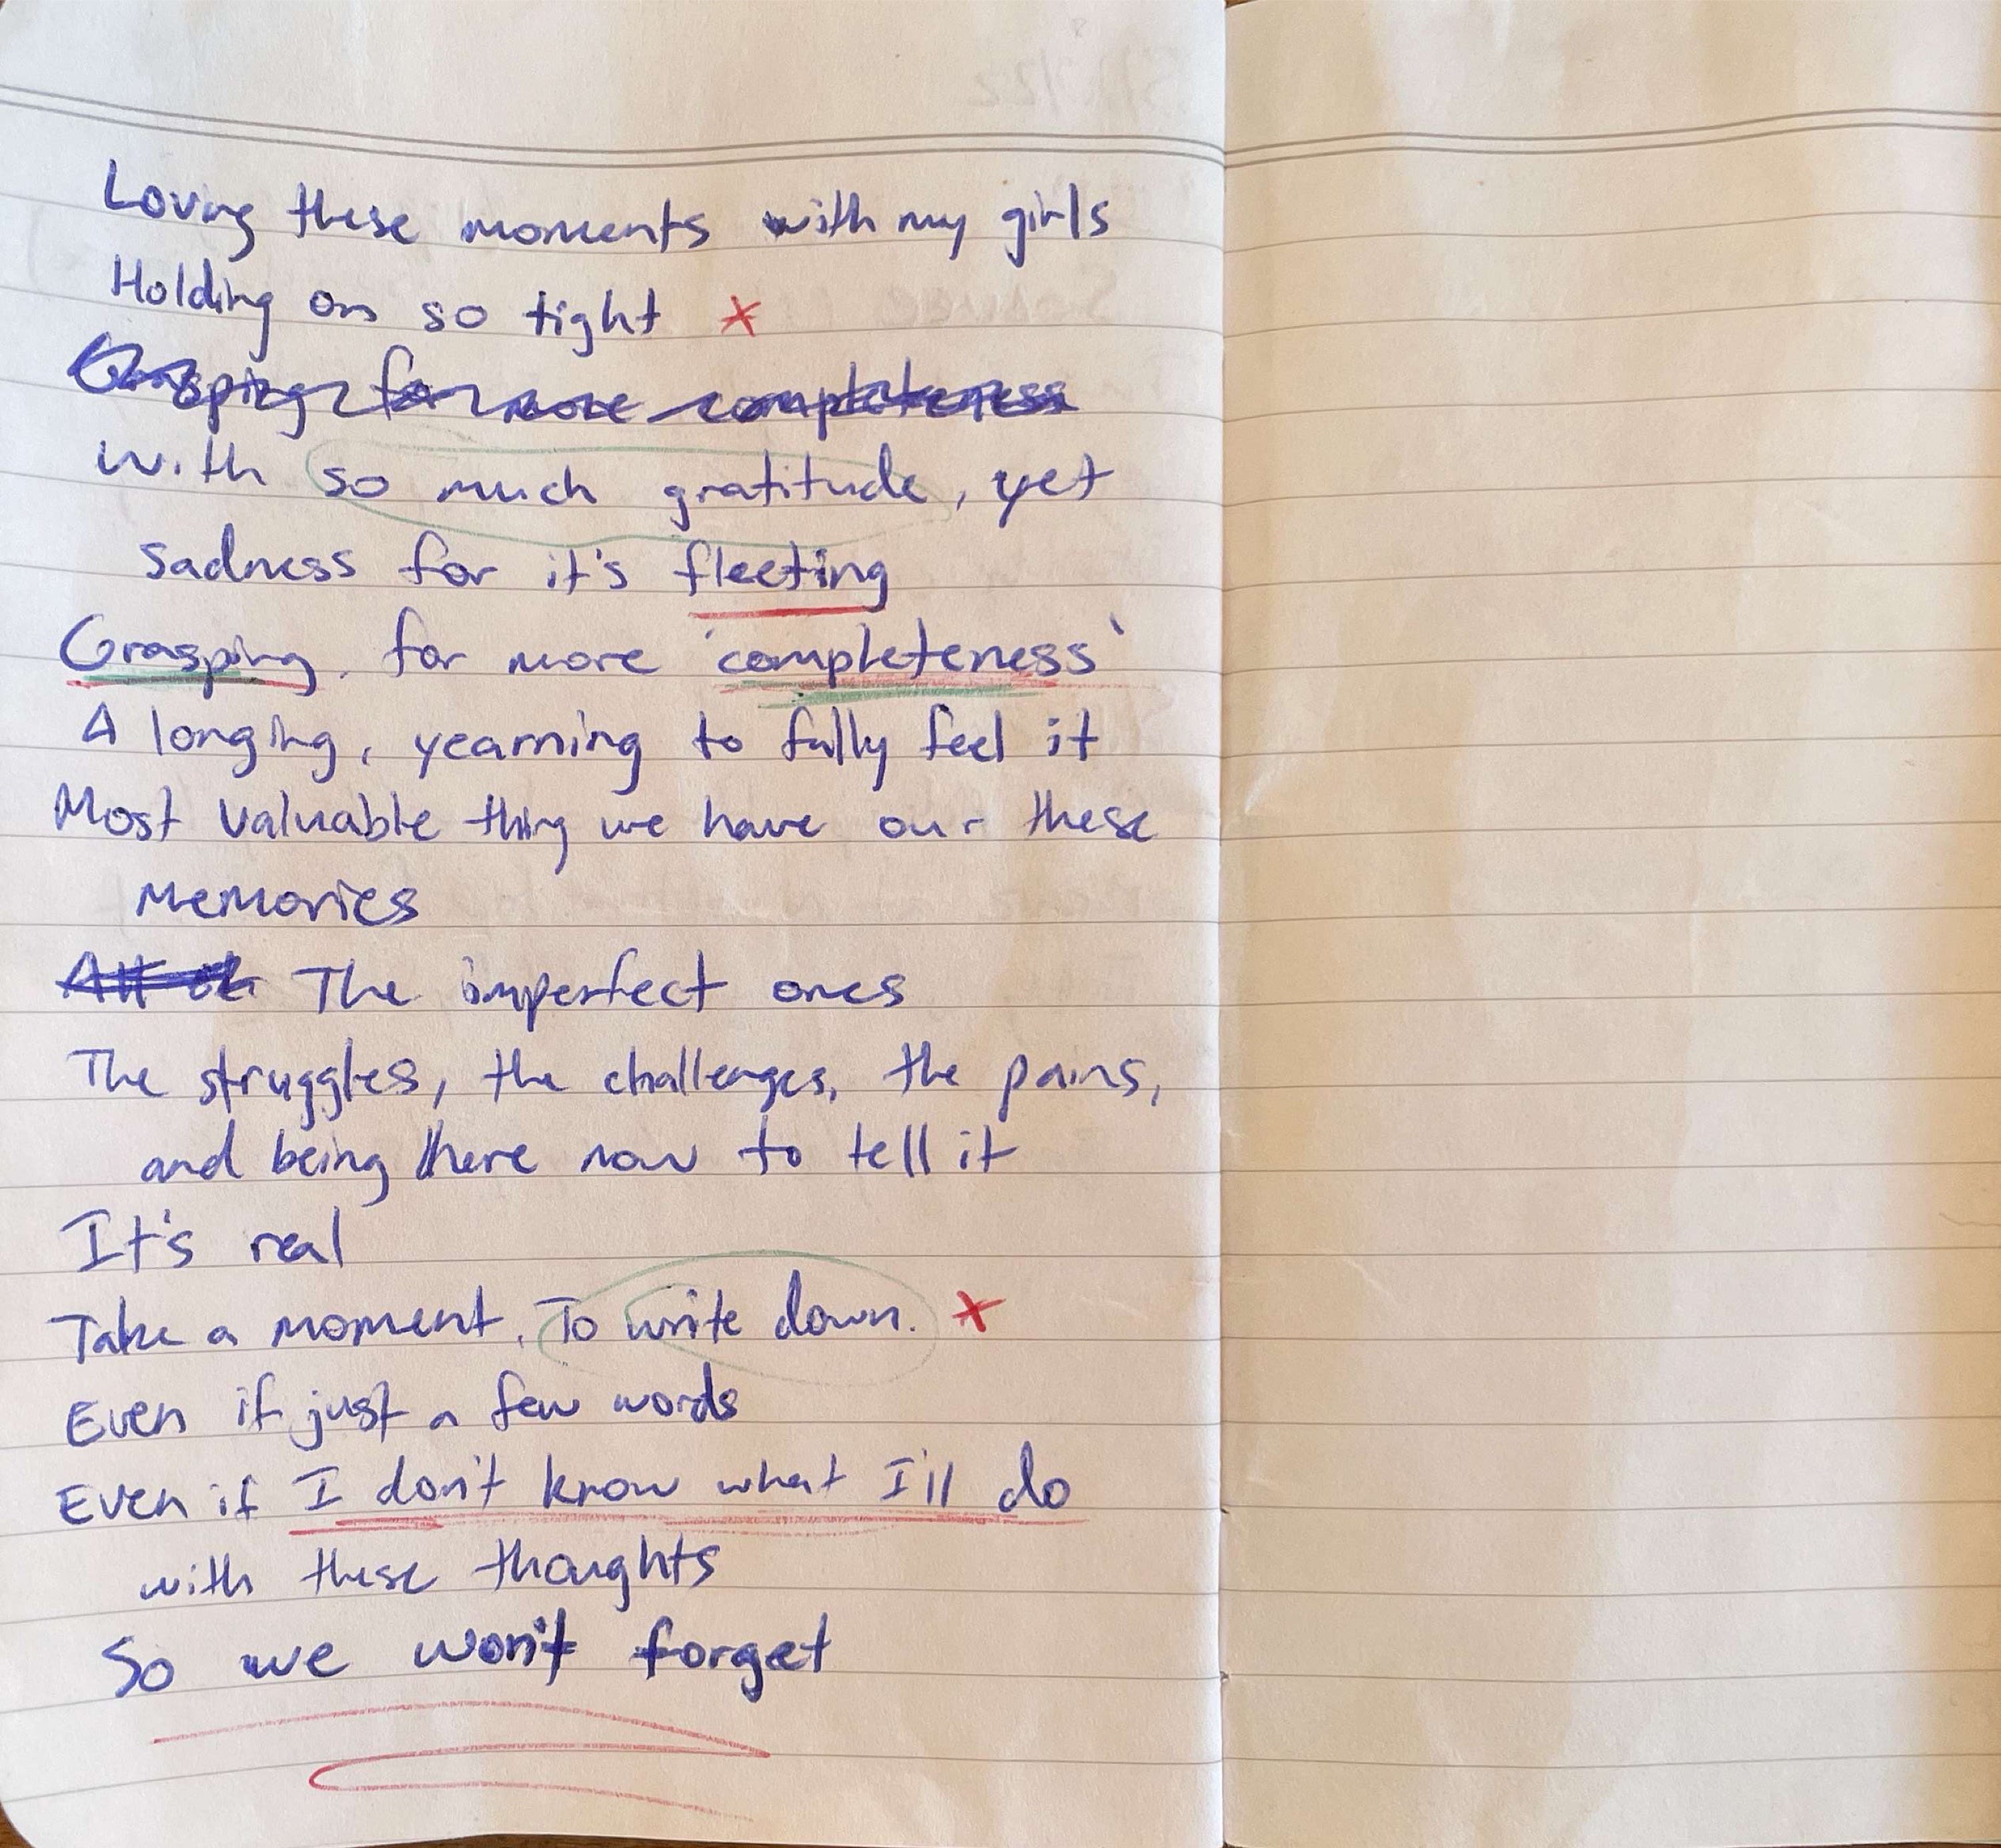 Loving these moments with my girls
Holding on so tight x
Grasping for more completeness
with so much gratitude, yet
sadness for it's fleeting
Grasping. for more 'completeness'
A longing, yearning to fully feel it
Most valuable thing we have our these
memories
All of The imperfect ones
The struggles, the challenges, the pains,
and being there now to tell it
It's real
Take a moment. To write down. x
Even if just a few words
Even if I don't know what I'll do
with these thoughts
So we won't forget